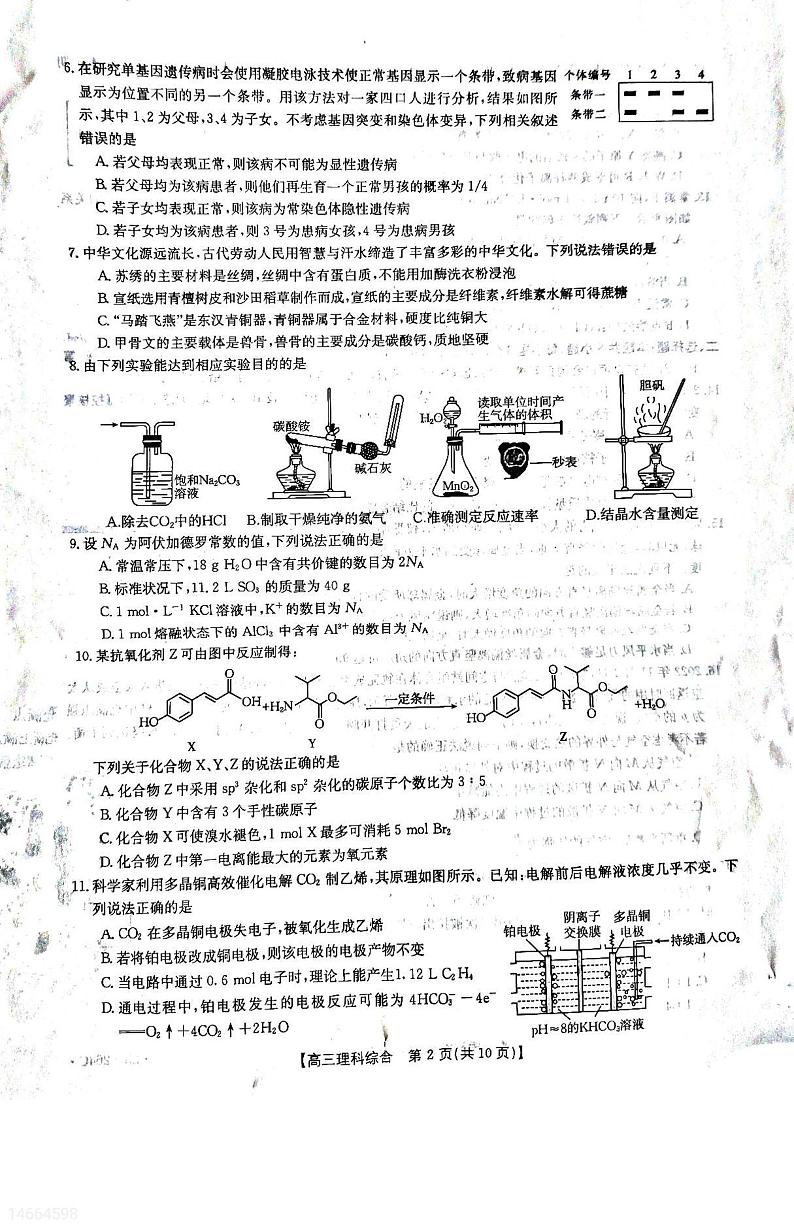 6. 在研究单基因遗传病时会使用凝胶电泳技术使正常基因显示一个条带,致病基因
显示为位置不同的另一个条带。用该方法对一家四口人进行分析,结果如图所
示,其中1、2为父母,3、4为子女。不考虑基因突变和染色体变异,下列相关叙述
错误的是
个体编号 1 2 3 4
条带一
条带二
A. 若父母均表现正常,则该病不可能为显性遗传病
B. 若父母均为该病患者,则他们再生育一个正常男孩的概率为 1/4
C. 若子女均表现正常,则该病为常染色体隐性遗传病
D. 若子女均为该病患者,则 3 号为患病女孩,4 号为患病男孩
7. 中华文化源远流长,古代劳动人民用智慧与汗水缔造了丰富多彩的中华文化。下列说法错误的是
A. 苏绣的主要材料是丝绸,丝绸中含有蛋白质,不能用加酶洗衣粉浸泡
B. 宣纸选用青檀树皮和沙田稻草制作而成,宣纸的主要成分是纤维素,纤维素水解可得蔗糖
C. “马踏飞燕”是东汉青铜器,青铜器属于合金材料,硬度比纯铜大
D. 甲骨文的主要载体是兽骨,兽骨的主要成分是碳酸钙,质地坚硬
8. 由下列实验能达到相应实验目的的是
饱和Na₂CO₃
溶液
碳酸铵
碱石灰
H₂O
读取单位时间产
生气体的体积
秒表
MnO₂
胆矾
A.除去CO₂中的HCl B.制取干燥纯净的氨气 C.准确测定反应速率 D.结晶水含量测定
9. 设 Nᴀ 为阿伏加德罗常数的值,下列说法正确的是
A. 常温常压下,18 g H₂O 中含有共价键的数目为 2Nᴀ
B. 标准状况下,11.2 L SO₃ 的质量为 40 g
C. 1 mol·L⁻¹ KCl 溶液中,K⁺ 的数目为 Nᴀ
D. 1 mol 熔融状态下的 AlCl₃ 中含有 Al³⁺ 的数目为 Nᴀ
10. 某抗氧化剂 Z 可由图中反应制得:
HO O OH + H₂N O O 一定条件 HO O N H O O +H₂O
X Y Z
下列关于化合物 X、Y、Z 的说法正确的是
A. 化合物 Z 中采用 sp³ 杂化和 sp² 杂化的碳原子个数比为 3∶5
B. 化合物 Y 中含有 3 个手性碳原子
C. 化合物 X 可使溴水褪色,1 mol X 最多可消耗 5 mol Br₂
D. 化合物 Z 中第一电离能最大的元素为氧元素
11. 科学家利用多晶铜高效催化电解 CO₂ 制乙烯,其原理如图所示。已知:电解前后电解液浓度几乎不变。下
列说法正确的是
A. CO₂ 在多晶铜电极失电子,被氧化生成乙烯
B. 若将铂电极改成铜电极,则该电极的电极产物不变
C. 当电路中通过 0.6 mol 电子时,理论上能产生1.12 L C₂H₄
D. 通电过程中,铂电极发生的电极反应可能为 4HCO₃⁻ −4e⁻
══O₂↑+4CO₂↑+2H₂O
铂电极
阴离子
交换膜
多晶铜
电极
持续通入CO₂
pH≈8的KHCO₃溶液
【高三理科综合 第 2 页(共 10 页)】
14664598